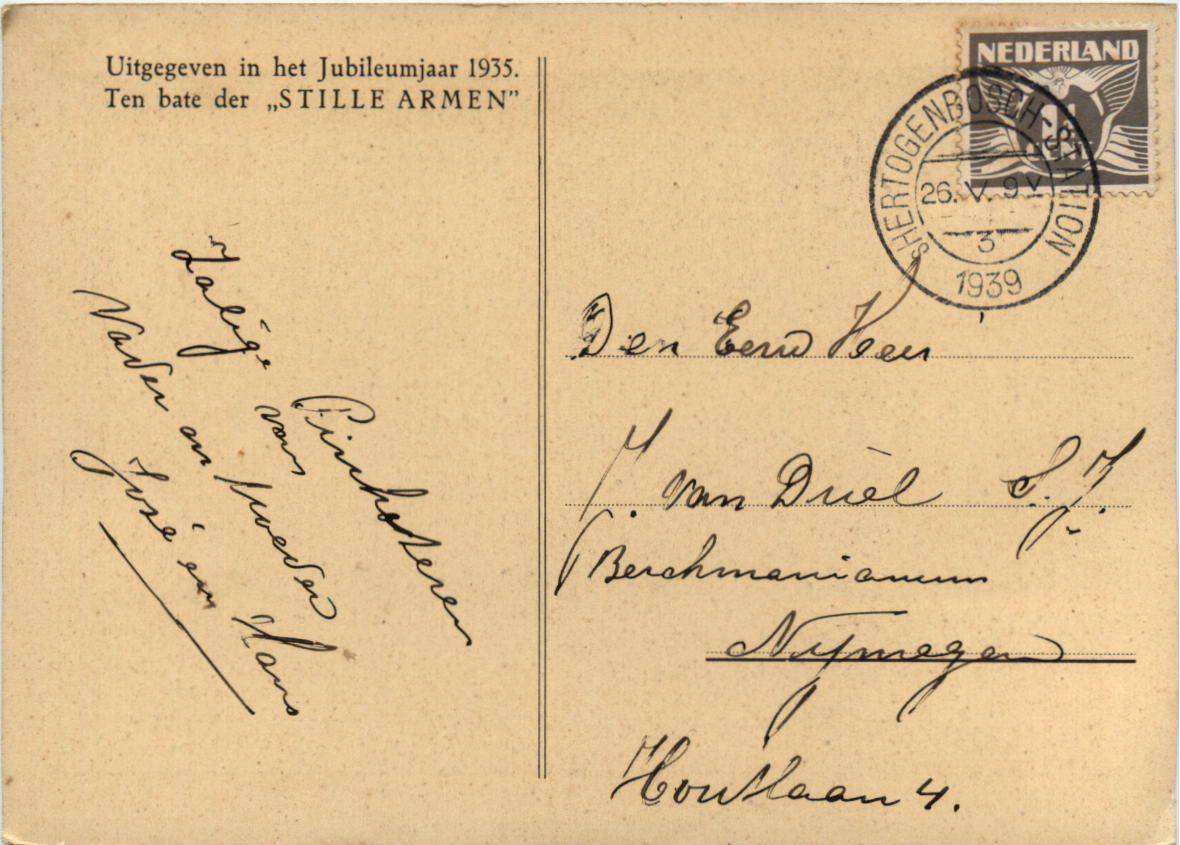 Uitgegeven in het Jubileumjaar 1935.
Ten bate der „STILLE ARMEN”
Zalige Pinksteren
van
Vader en Moeder
José en Hans
NEDERLAND
1½
SHERTOGENBOSCH-STATION
26.V. 9V
3
1939
Den Eerw Heer
J. van Driel S.J.
Berchmanianum
Nijmegen
Houtlaan 4.